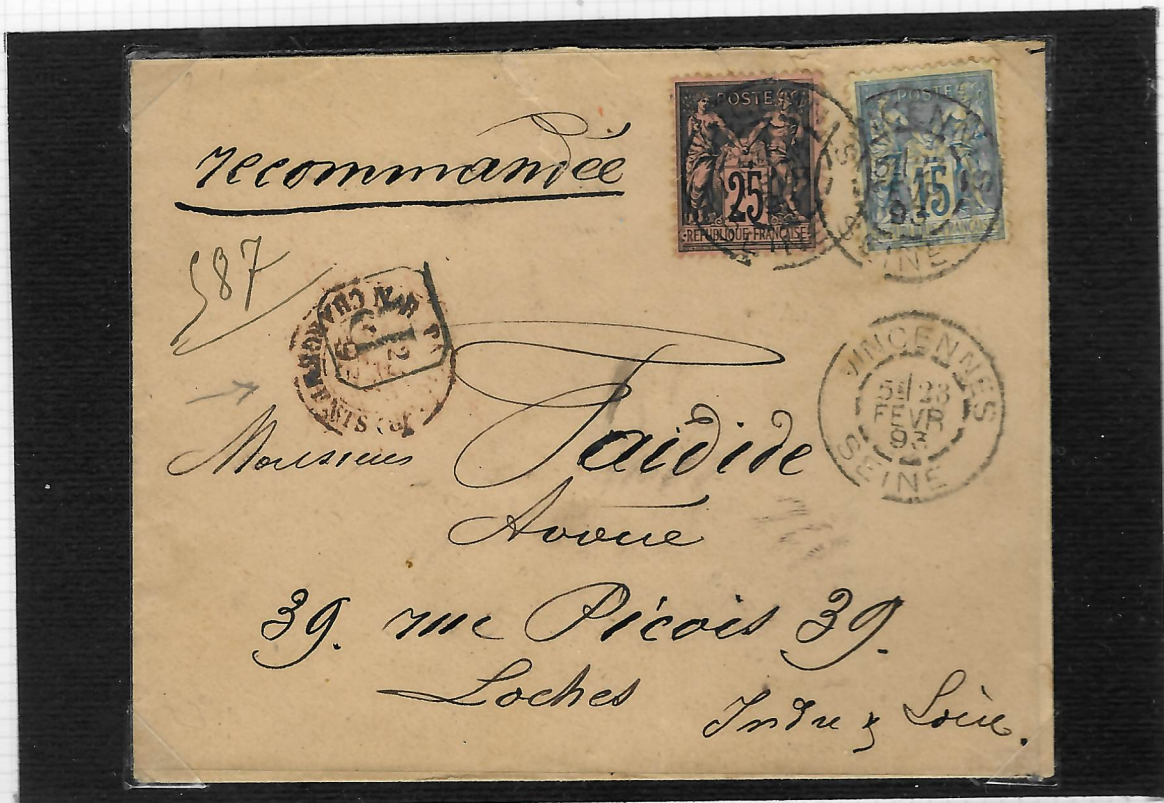 recommandée
587
POSTE
25
REPUBLIQUE FRANÇAISE
POSTE
15
VINCENNES
93
SEINE
R
VINCENNES
5E/28
FEVR
93
SEINE
Monsieur
Taidide
Avoué
39. rue Picois 39.
Loches
Indre & Loire.